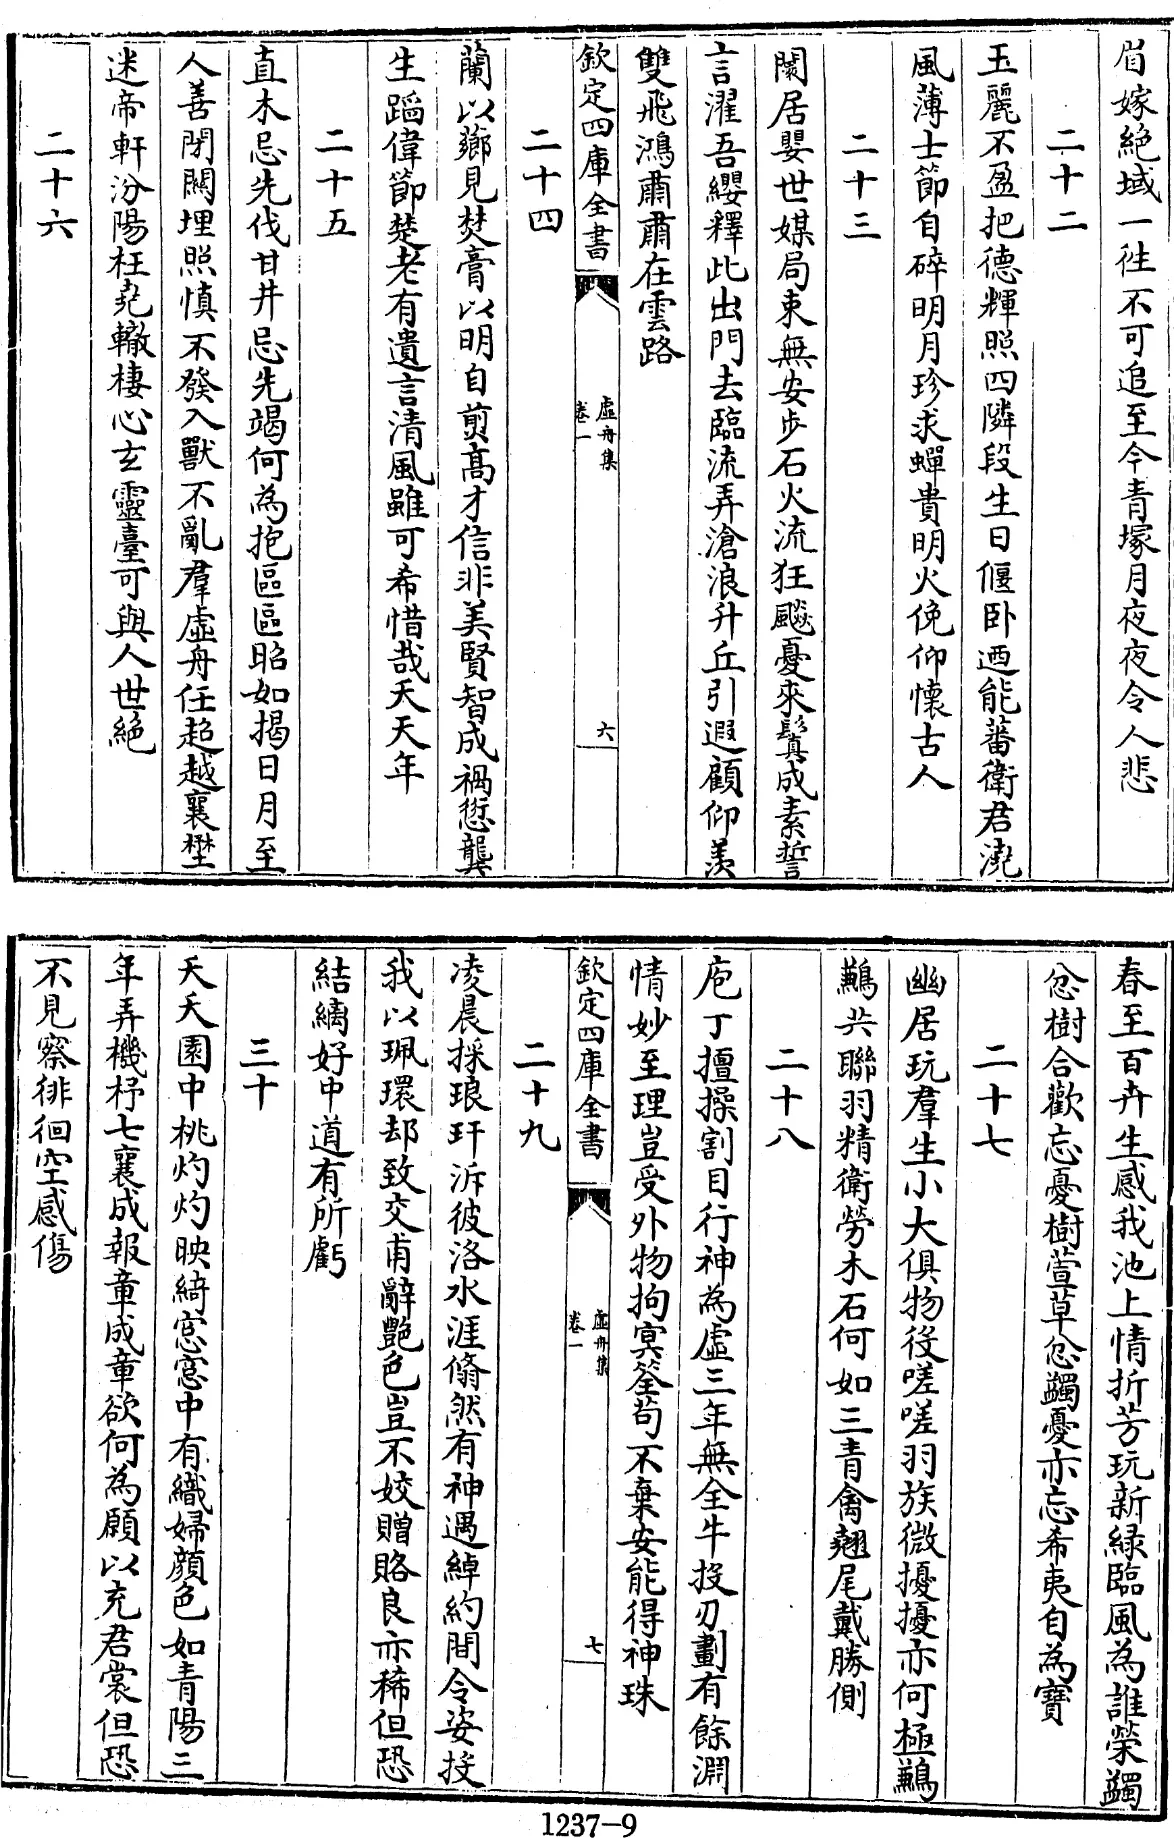 眉嫁絶域一往不可追至今青塚月夜夜令人悲
二十二
玉麗不盈把德輝照四隣段生日偃卧迺能蕃衛君澆
風薄士節自碎明月珍求蟬貴明火俛仰懷古人
二十三
闤居嬰世媒局束無安步石火流狂飈憂來鬒成素誓
言濯吾纓釋此出門去臨流弄滄浪升丘引遐顧仰羨
雙飛鴻肅肅在雲路
欽定四庫全書
虛舟集
卷一
六
二十四
蘭以薌見焚膏以明自煎高才信非美賢智成禍愆龔
生蹈偉節楚老有遺言清風雖可希惜哉夭天年
二十五
直木忌先伐甘井忌先竭何為抱區區昭如揭日月至
人善閉關埋照慎不發入獸不亂羣虛舟任超越襄埜
迷帝軒汾陽枉堯轍棲心玄靈臺可與人世絶
二十六
春至百卉生感我池上情折芳玩新緑臨風為誰榮蠲
忿樹合歡忘憂樹萱草忿蠲憂亦忘希夷自為寶
二十七
幽居玩羣生小大俱物役嗟嗟羽族微擾擾亦何極鶼
鶼共聯羽精衛勞木石何如三青禽翹尾戴勝側
二十八
庖丁擅操割目行神為虛三年無全牛投刃劃有餘淵
情妙至理豈受外物拘冥筌苟不棄安能得神珠
欽定四庫全書
虛舟集
卷一
七
二十九
凌晨採琅玕泝彼洛水涯翛然有神遇綽約閒令姿投
我以珮環却致交甫辭艷色豈不姣贈賂良亦稀但恐
結縭好中道有所虧
三十
夭夭園中桃灼灼映綺窓窓中有織婦顔色如青陽三
年弄機杼七襄成報章成章欲何為願以充君裳但恐
不見察徘徊空感傷
1237-9